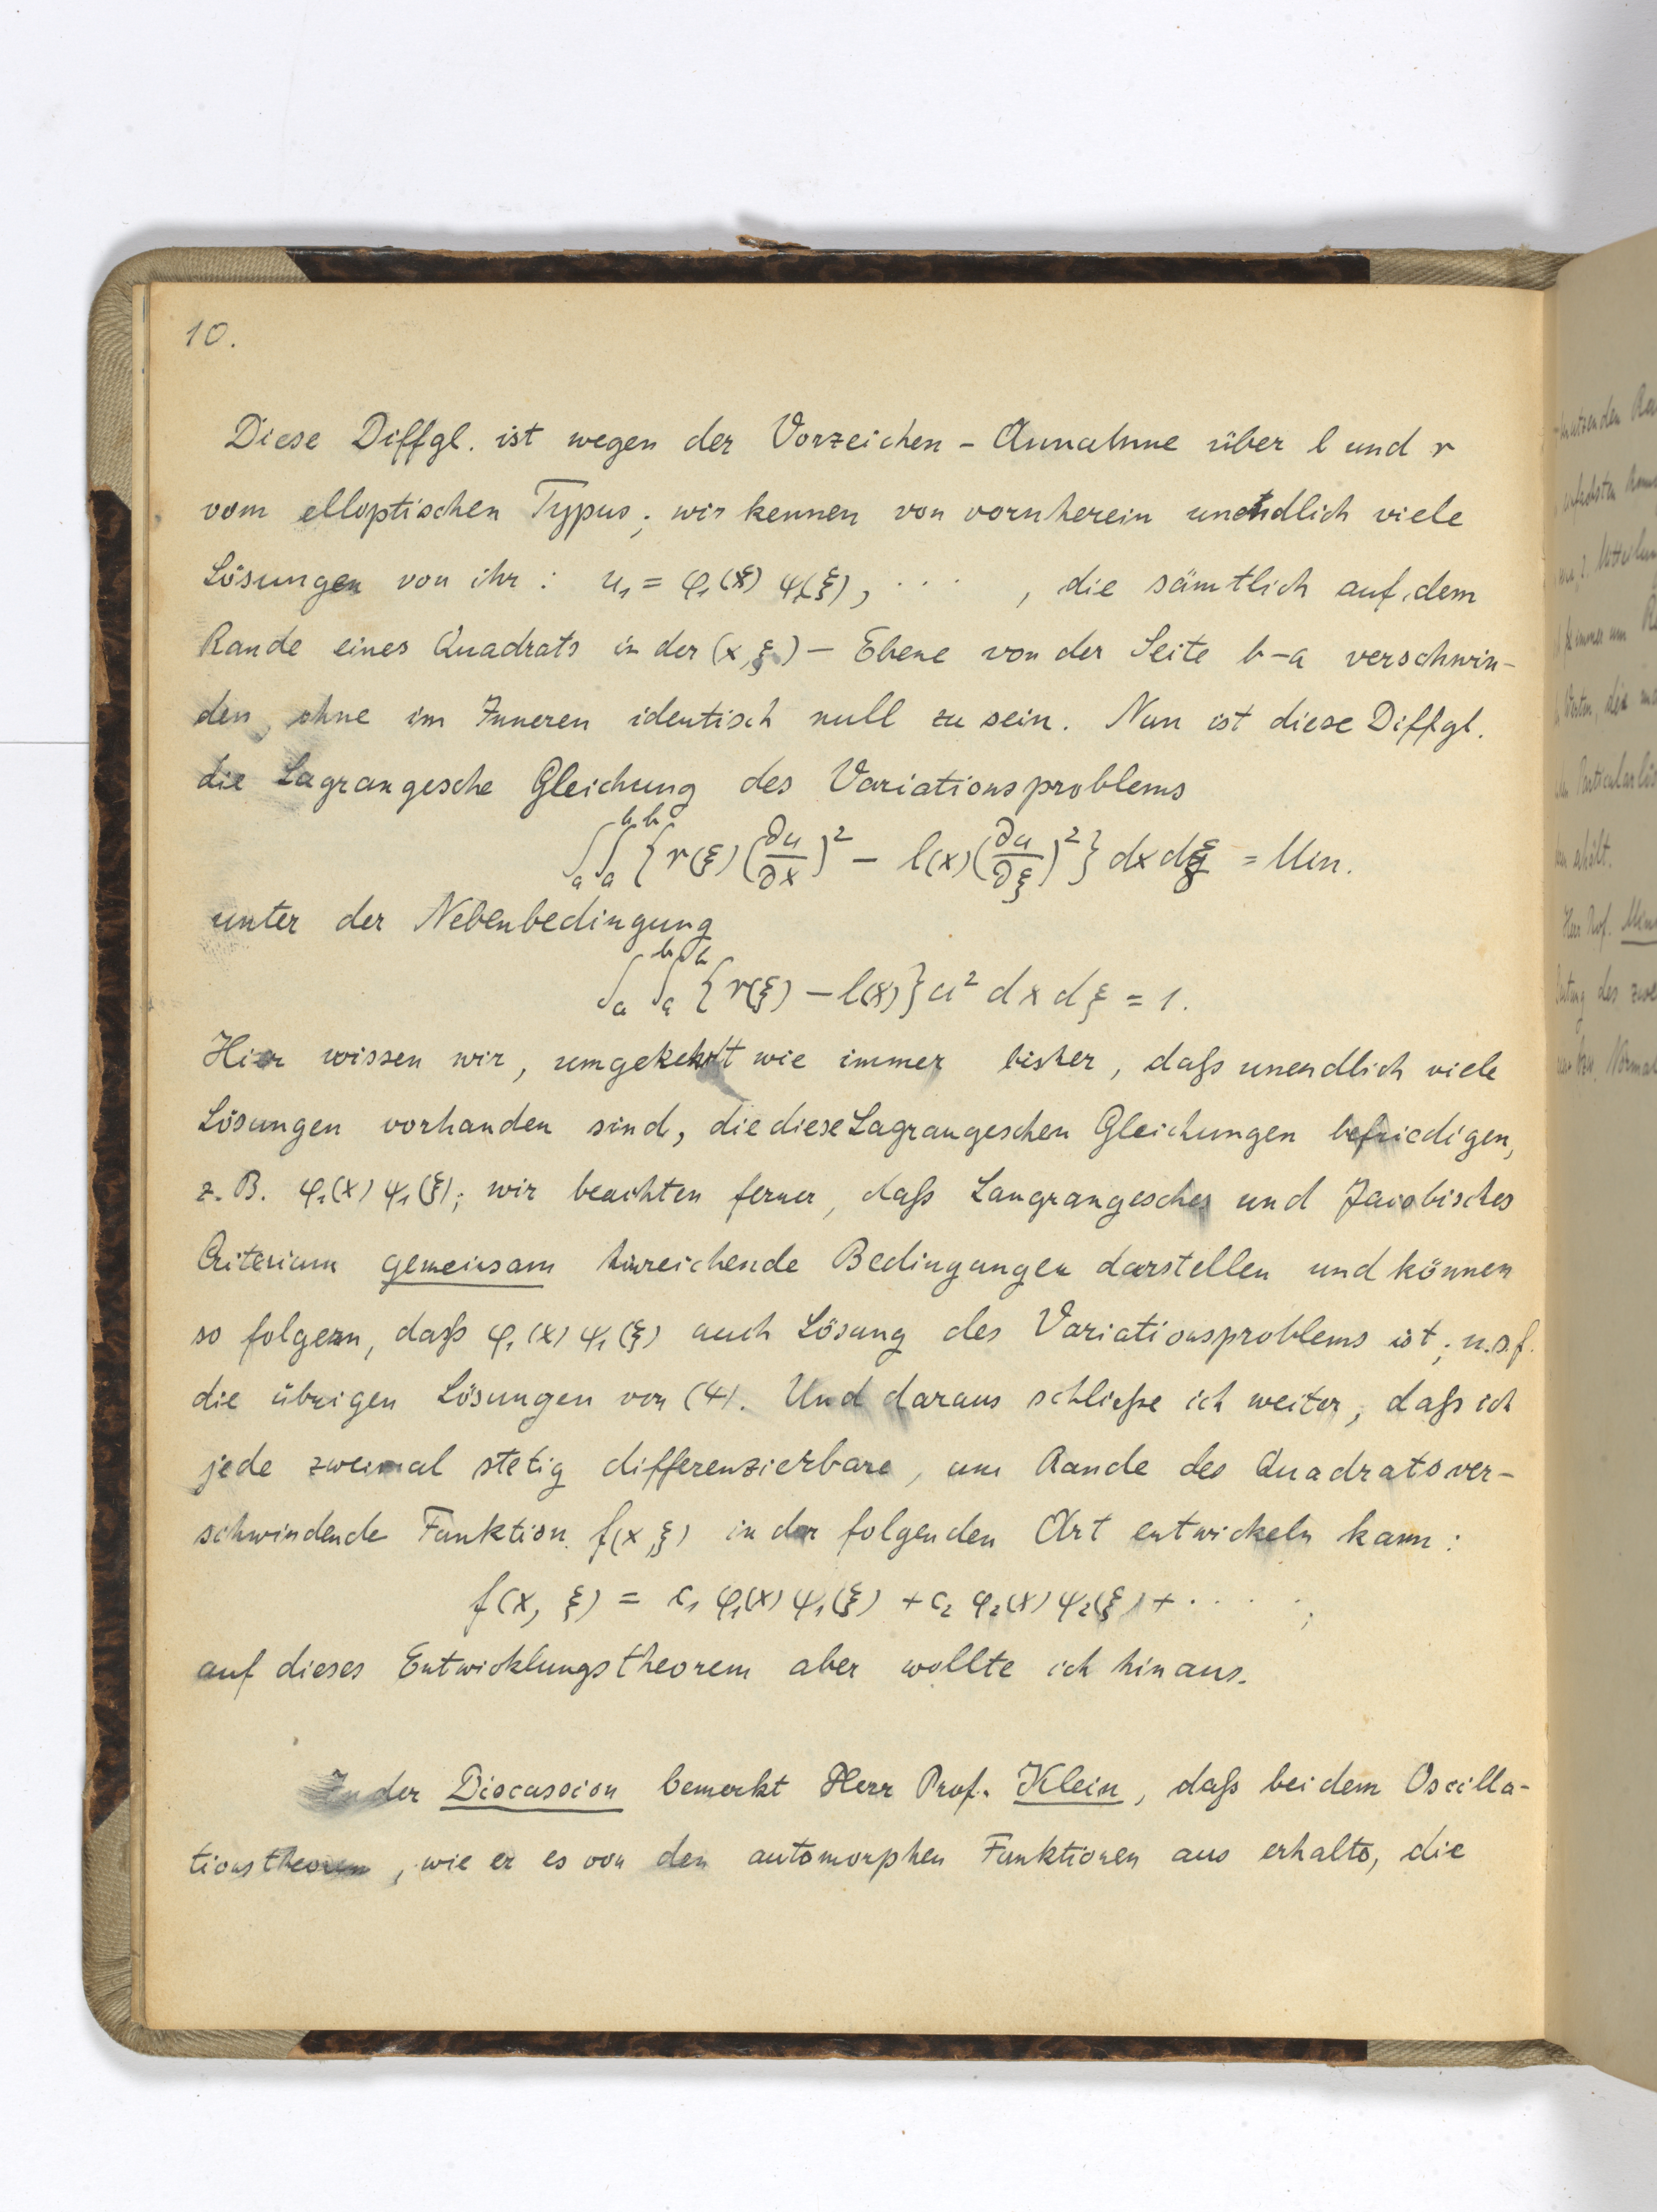 10.
Diese Diffgl. ist wegen der Vorzeichen - Annahme über l und r
vom elloptischen Typus; wir kennen von vornherein unendlich viele
Lösungen von ihr: u₁ = φ₁(x) ψ₁(ξ), · · · , die sämtlich auf dem
Rande eines Quadrats in der (x, ξ) – Ebene von der Seite b–a verschwin-
den, ohne im Inneren identisch null zu sein. Nun ist diese Diffgl.
die Lagrangesche Gleichung des Variationsproblems
∫ₐᵇ∫ₐᵇ {r(ξ)(∂u/∂x)² – l(x)(∂u/∂ξ)²} dx dξ = Min.
unter der Nebenbedingung
∫ₐᵇ∫ₐᵇ {r(ξ) – l(x)} u² dx dξ = 1.
Hier wissen wir, umgekehrt wie immer bisher, daß unendlich viele
Lösungen vorhanden sind, die diese Lagrangeschen Gleichungen befriedigen,
z. B. φ₁(x) ψ₁(ξ); wir beachten ferner, daß Langrangesches und Jacobisches
Criterium gemeinsam hinreichende Bedingungen darstellen und können
so folgern, daß φ₁(x) ψ₁(ξ) auch Lösung des Variationsproblems ist; u.s.f.
die übrigen Lösungen von (4). Und daraus schließe ich weiter, daß ich
jede zweimal stetig differenzierbare, am Rande des Quadrats ver-
schwindende Funktion f(x, ξ) in der folgenden Art entwickeln kann:
f(x, ξ) = c₁ φ₁(x) ψ₁(ξ) + c₂ φ₂(x) ψ₂(ξ) + · · · · ;
auf dieses Entwicklungstheorem aber wollte ich hinaus.
In der Discussion bemerkt Herr Prof. Klein, daß bei dem Oscilla-
tionstheorem, wie er es von den automorphen Funktionen aus erhalte, die